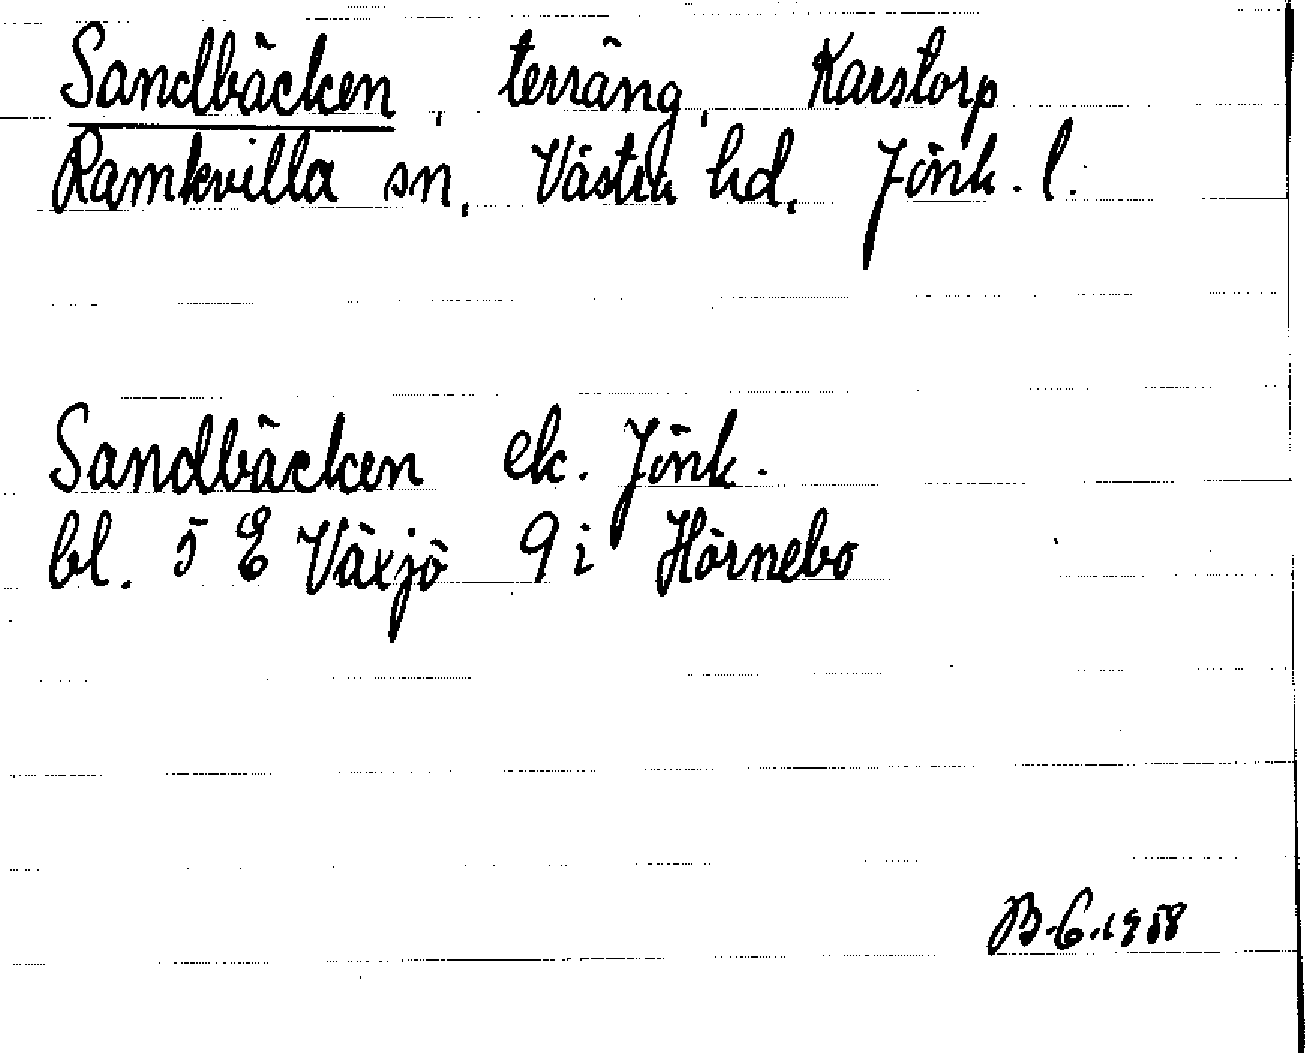 Sandbäcken, terräng, Karstorp
Ramkvilla sn, Västra hd, Jönk. l.
Sandbäcken ek. Jönk.
bl. 5 E Växjö 9 i Hörnebo
B.G. 1958